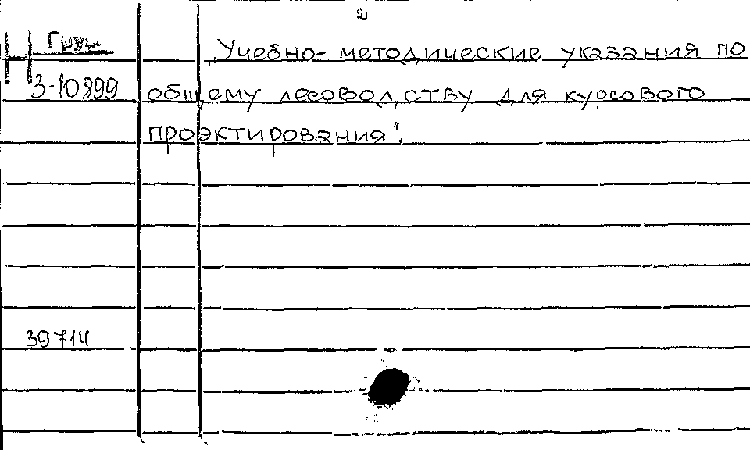 Груз
Учебно-методические указания по
3-10899 общему лесоводству для курсового
проэктирования".
39714